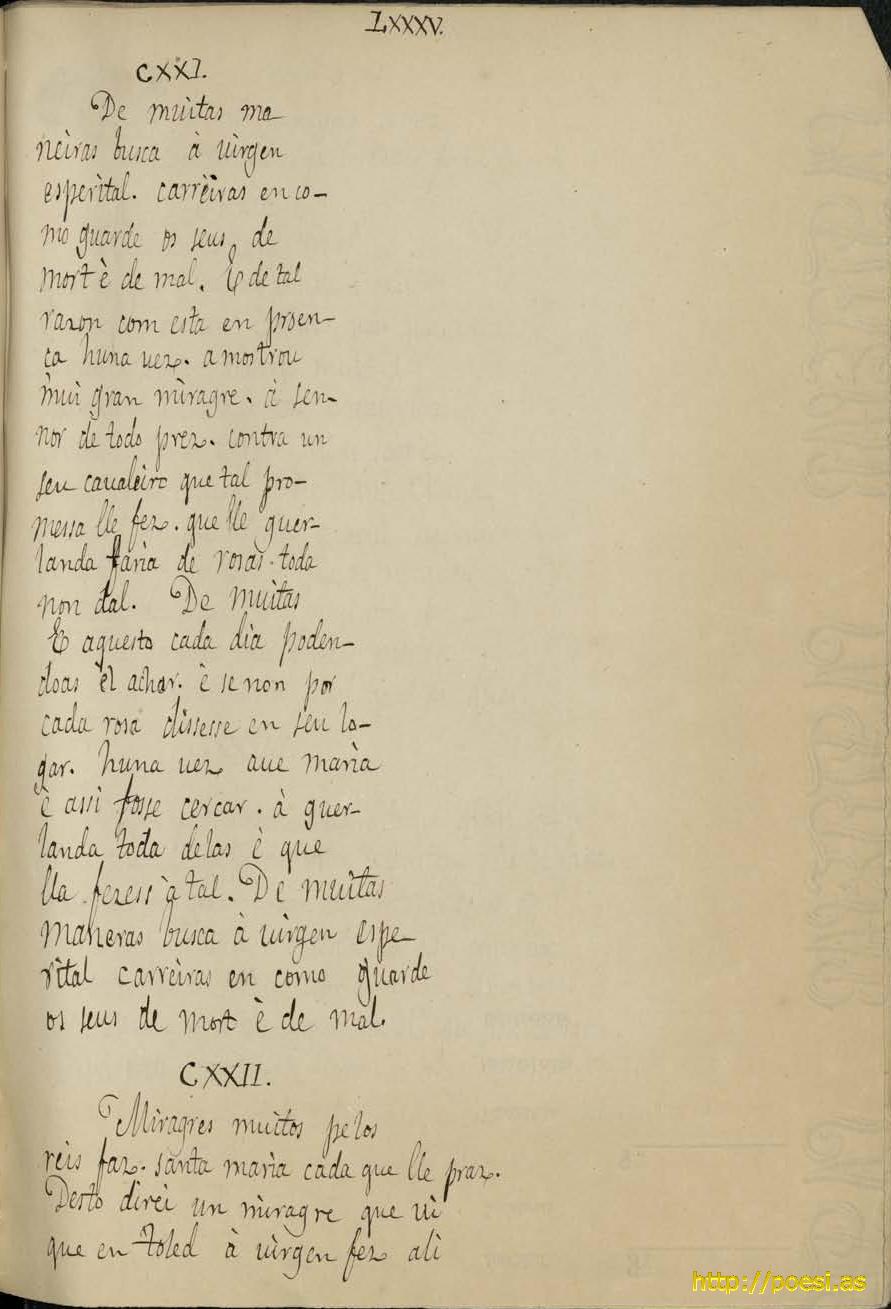 LXXXV.
CXXI.
De muitas ma
neiras busca à uirgen
esperital. carreiras en co-
mo guarde os seus, de
mort è de mal. E de tal
razon com esta en proen-
ca huna uez. amostrou
mui gran miragre. à sen-
nor de todo prez. contra un
seu caualeiro que tal pro-
messa lle fez. que lle guer-
landa faria de rosas. toda
non dal. De muitas
E aquesto cada dia poden-
doas el achar. è se non por
cada rosa dissesse en seu lo-
gar. huna uez aue maria
è assi fosse cercar. à guer-
landa toda delas è que
lla fezess à tal. De muitas
maneras busca à uirgen espe-
rital carreiras en como guarde
os seus de mort è de mal.
CXXII.
Miragres muitos pelos
reis faz. santa maria cada que lle praz.
Desto direi un miragre que ui
que en Toled à uirgen fez ali
http://poesi.as